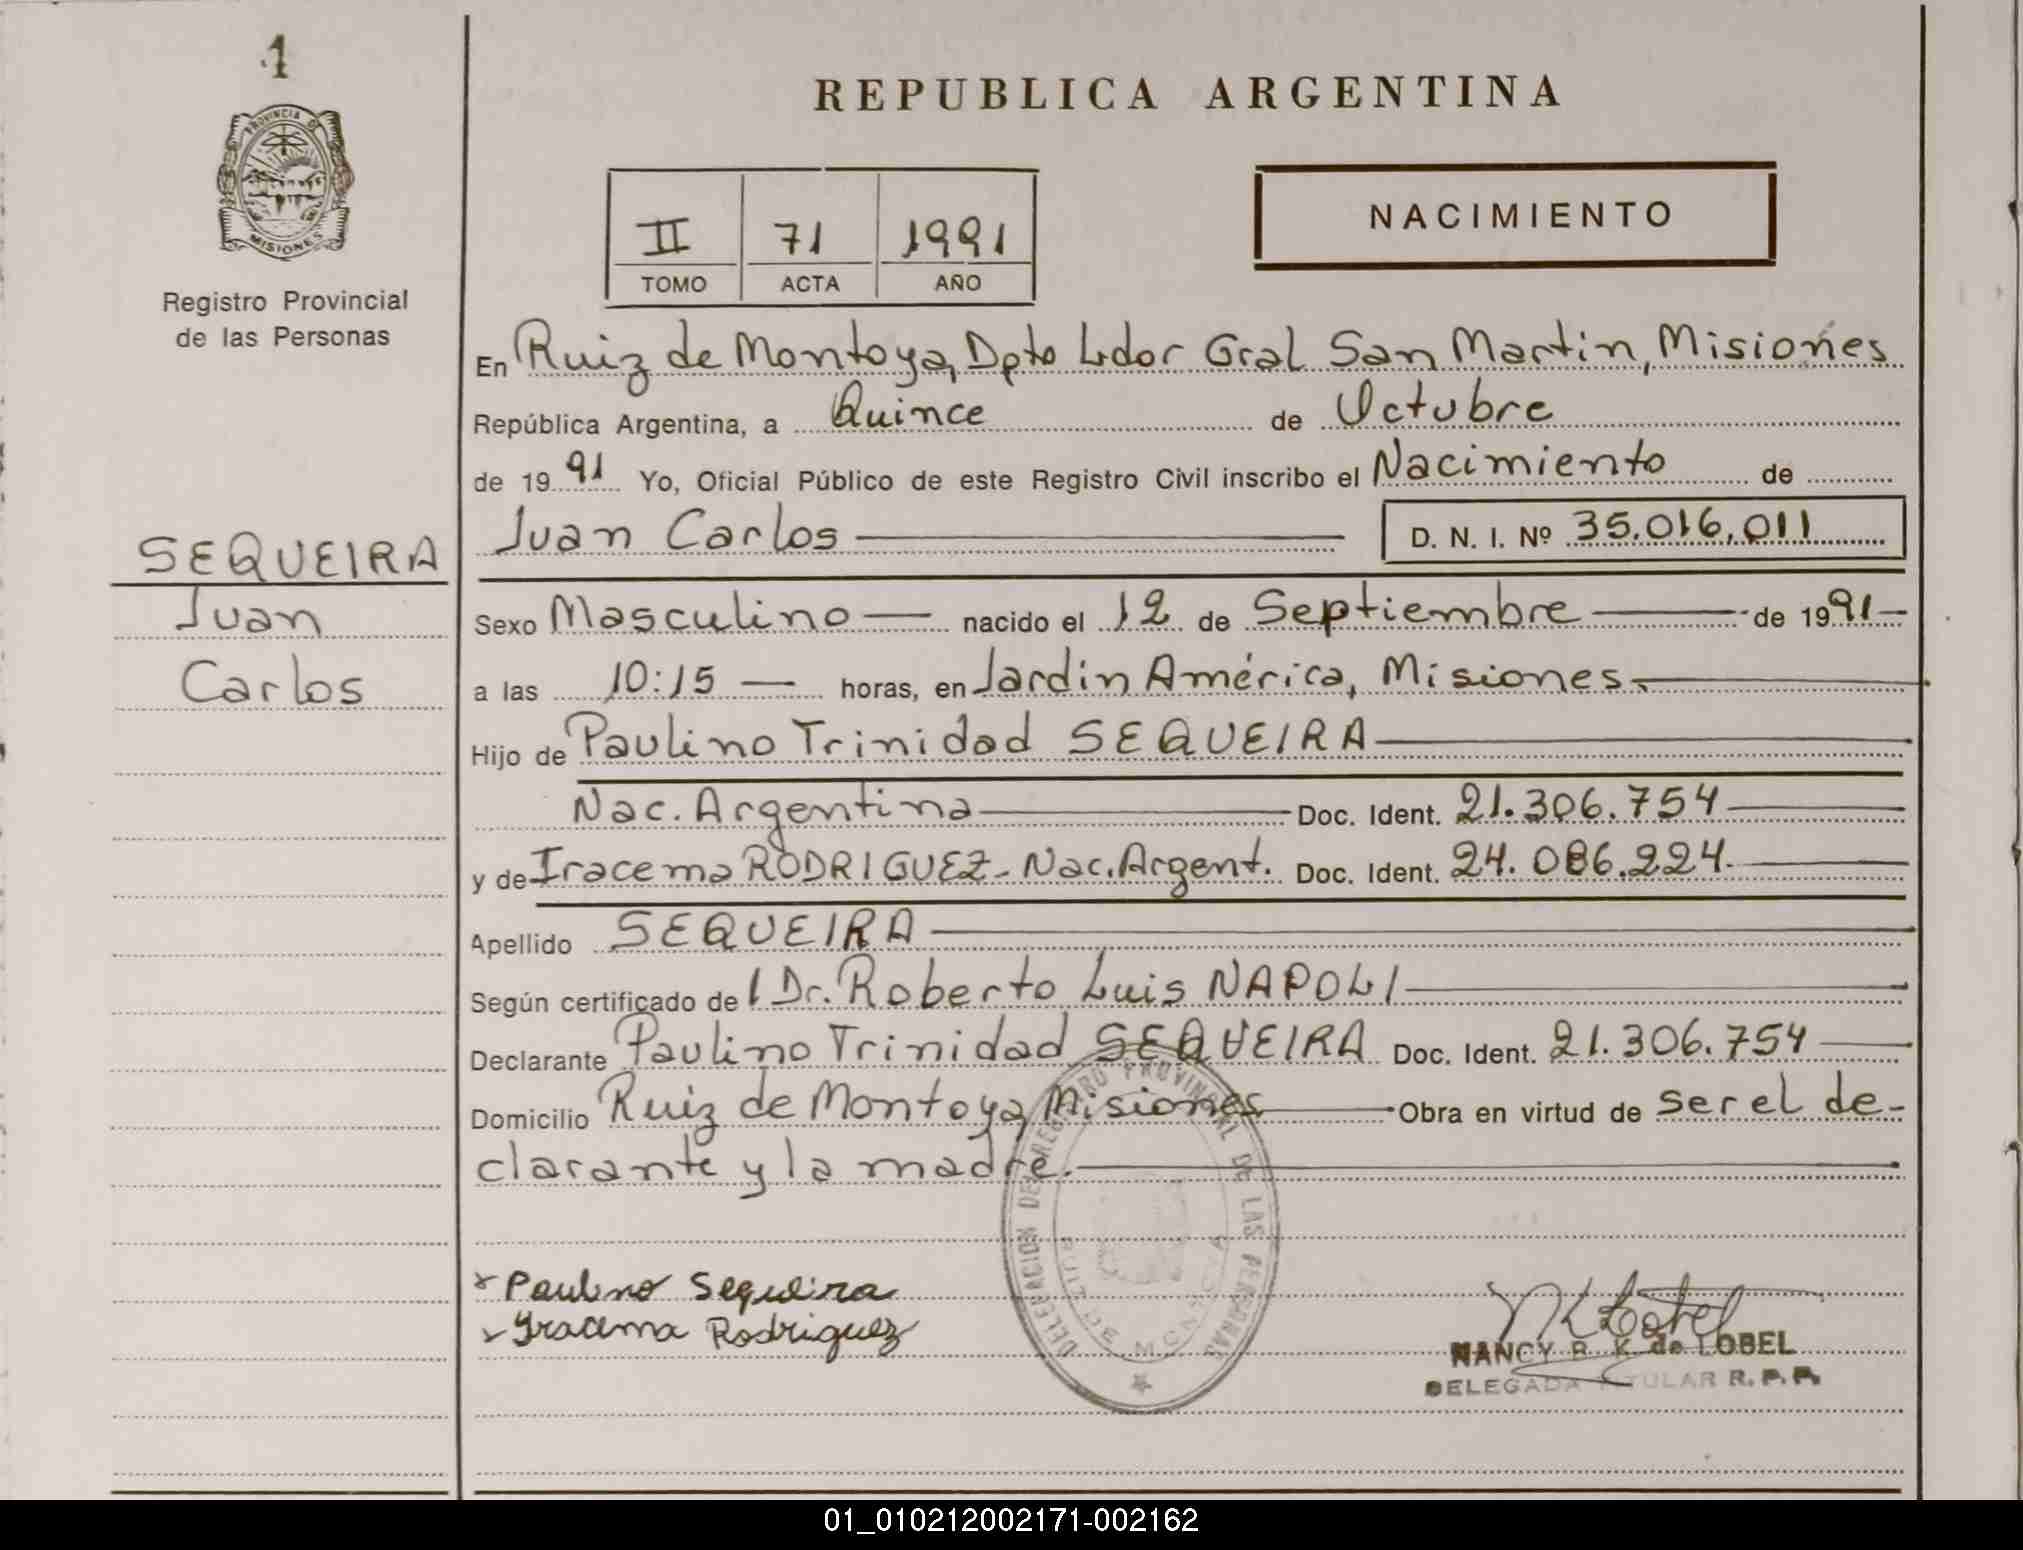 1
PROVINCIA DE
MISIONES
Registro Provincial
de las Personas
SEQUEIRA
Juan
Carlos
REPUBLICA ARGENTINA
II 71 1991
TOMO ACTA AÑO
NACIMIENTO
En Ruiz de Montoya, Dpto Ldor Gral San Martin, Misiones
República Argentina, a Quince de Octubre
de 1991 Yo, Oficial Público de este Registro Civil inscribo el Nacimiento de
Juan Carlos D. N. I. Nº 35.016.011
Sexo Masculino nacido el 12 de Septiembre de 1991
a las 10:15 horas, en Jardin América, Misiones.
Hijo de Paulino Trinidad SEQUEIRA
Nac. Argentina Doc. Ident. 21.306.754
y de Iracema RODRIGUEZ - Nac. Argent. Doc. Ident. 24.086.224
Apellido SEQUEIRA
Según certificado de l Dr. Roberto Luis NAPOLI
Declarante Paulino Trinidad SEQUEIRA Doc. Ident. 21.306.754
Domicilio Ruiz de Montoya, Misiones Obra en virtud de ser el de-
clarante y la madre.
DELEGACION DEL REGISTRO PROVINCIAL DE LAS PERSONAS
RUIZ DE MONTOYA
x Paulino Sequeira
x Iracema Rodriguez
NANCY B. K. de LOBEL
DELEGADA TITULAR R. P. P.
01_010212002171-002162